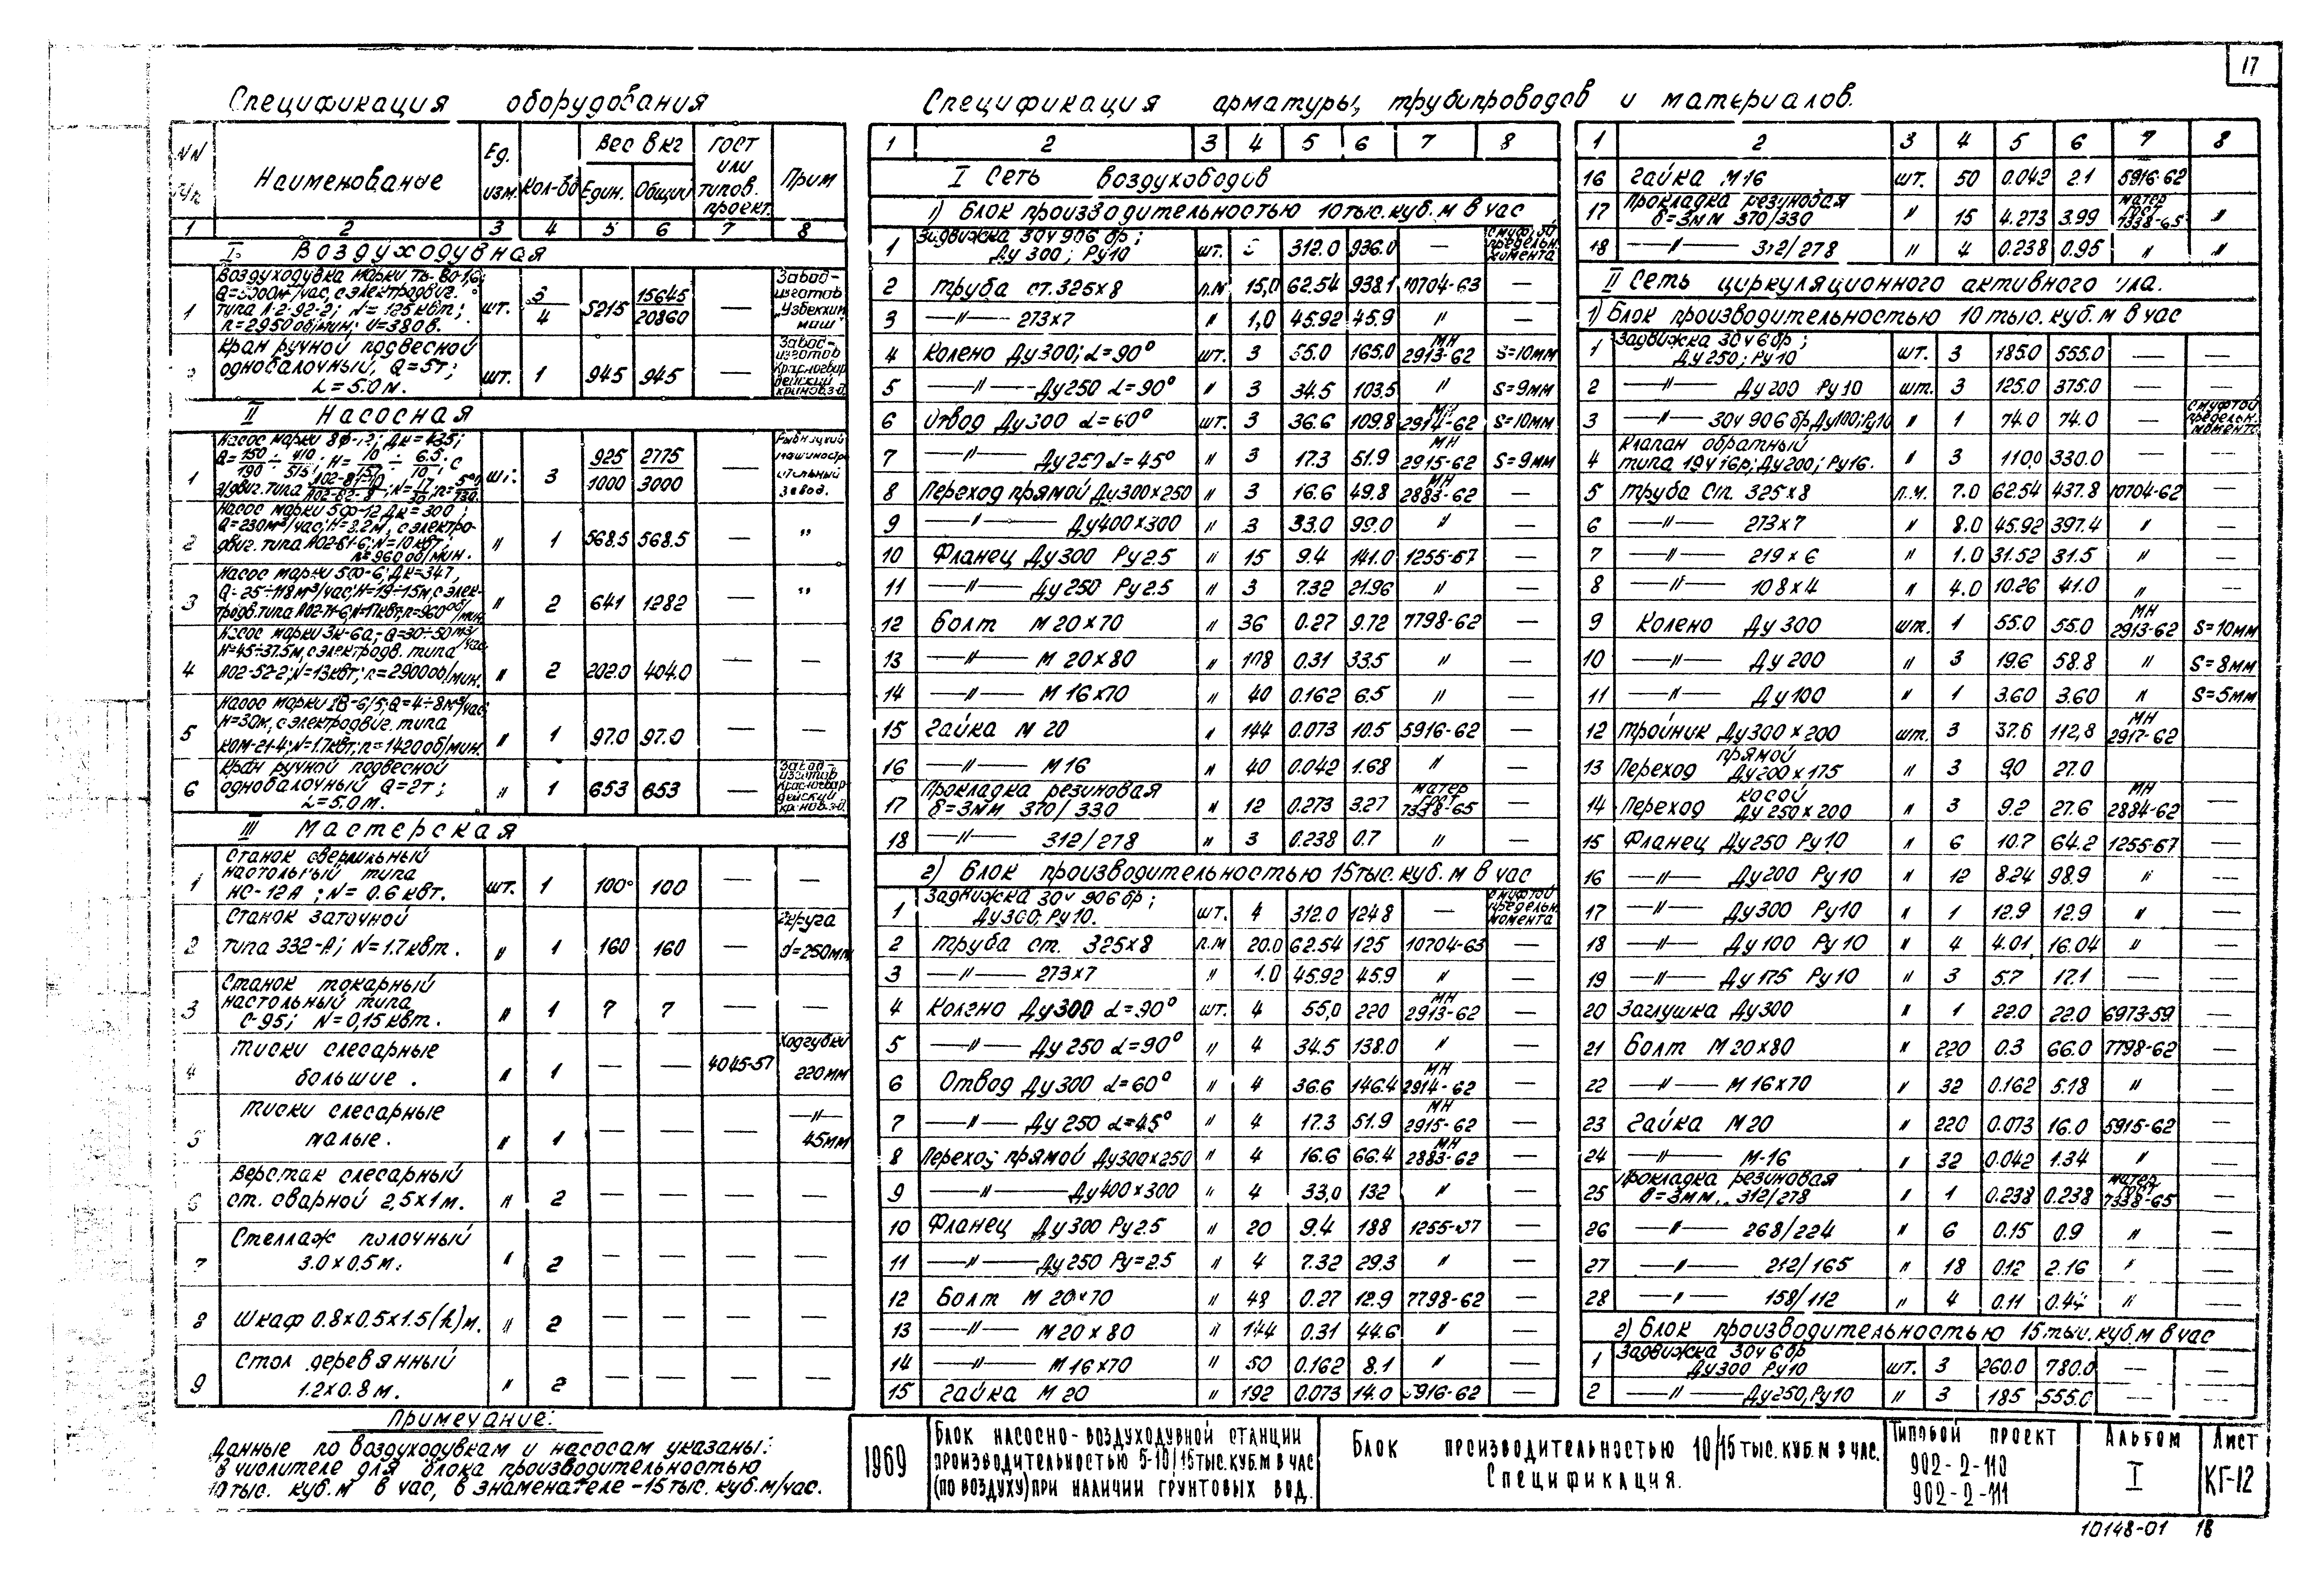 17
Спецификация оборудования
NN п/п Наименование Ед. изм. Кол-во Вес в кг Един. Общий ГОСТ или типов. проект. Прим
1 2 3 4 5 6 7 8
I. Воздуходувная
1 Воздуходувка марки ТВ-80-1,6;
Q=5000м³/час, с электродвиг.
типа А-2-92-2; N=125квт;
n=2950об/мин; U=380в.
шт. 3/4 5215 15645/20860 — Завод-изготов „Узбекхиммаш"
Кран ручной подвесной
однобалочный, Q=5т;
L=5.0м.
шт. 1 945 945 — Завод-изготов Красногвардейский кранов.з-д.
II Насосная
1 Насос марки 8Ф-12; Дк=435;
шт. 3 925/1000 2775/3000 —
завод.
2 Насос марки 5Ф-12 Дк=300;
Q=230м³/час; H=8.2м, с электро-
двиг. типа АО2-61-6; N=10квт;
n=960об/мин.
" 1 568.5 568.5 — "
3 Насос марки 5Ф-6; Дк=347,
Q=25÷118м³/час; H=19÷15м, с элек-
тродв. типа АО2-71-6, N=17квт, n=960об/мин.
" 2 641 1282 — "
4 Насос марки 3К-6а, Q=30÷50м3/час
H=45÷37.5м, с электродв. типа
АО2-52-2; N=13квт; n=2900об/мин.
" 2 202.0 404.0 — —
5 Насос марки 1В-6/5; Q=4÷8м³/час;
H=30м, с электродвиг. типа
КОМ-21-4; N=1.7квт; n=1420об/мин.
" 1 97.0 97.0 — —
6 Кран ручной подвесной
однобалочный Q=2т;
L=5.0м.
" 1 653 653 — Завод-изготов Красногвардейский кранов.з-д.
III Мастерская
1 Станок сверлильный
настольный типа
НС-12А; N=0.6квт.
шт. 1 100 100 — —
2 Станок заточной
типа 332-А; N=1.7квт.
" 1 160 160 — 2круга d=250мм
3 Станок токарный
настольный типа
С-95; N=0,15квт.
" 1 7 7 — —
4 Тиски слесарные
большие.
" 1 — — 4045-57 Ход губки 220мм
5 Тиски слесарные
малые.
" 1 —"— 45мм
6 Верстак слесарный
ст. сварной 2,5×1м.
" 2 — — — —
7 Стеллаж полочный
3.0×0.5м.
" 2 — — — —
8 Шкаф 0.8×0.5×1.5(h)м. " 2 — — — —
9 Стол деревянный
1.2×0.8м.
" 2 — — — —
Примечание:
Данные по воздуходувкам и насосам указаны:
В числителе для блока производительностью
10 тыс. куб.м в час, в знаменателе -15тыс. куб.м/час.
Спецификация арматуры, трубопроводов и материалов.
1 2 3 4 5 6 7 8
I Сеть воздуховодов
1) Блок производительностью 10тыс.куб.м в час
1 Задвижка 30ч 906 бр;
Ду 300; Ру10
шт. 312.0 936.0 — с муфтой предельн. момента
2 Труба ст. 325×8 п.м 15,0 62.54 938.1 10704-63 —
3 —"— 273×7 " 1,0 45.92 45.9 " —
4 Колено Ду300; α=90° шт. 3 55.0 165.0 МН 2913-62 S=10мм
5 —"— Ду250 α=90° " 3 34.5 103.5 " S=9мм
6 Отвод Ду300 α=60° шт. 3 36.6 109.8 МН 2914-62 S=10мм
7 —"— Ду250 α=45° " 3 17.3 51.9 МН 2915-62 S=9мм
8 Переход прямой Ду300×250 " 3 16.6 49.8 МН 2883-62 —
9 —"— Ду400×300 " 3 33.0 99.0 " —
10 Фланец Ду300 Ру2.5 " 15 9.4 141.0 1255-67 —
11 —"— Ду250 Ру2.5 " 3 7.32 21.96 " —
12 Болт М20×70 " 36 0.27 9.72 7798-62 —
13 —"— М20×80 " 108 0.31 33.5 " —
14 —"— М16×70 " 40 0.162 6.5 " —
15 Гайка М20 " 144 0.073 10.5 5916-62 —
16 —"— М16 " 40 0.042 1.68 " —
17 Прокладка резиновая
δ=3мм 370/330
" 12 0.273 3.27 матер ГОСТ 7338-65 —
18 —"— 312/278 " 3 0.238 0.7 " —
2) Блок производительностью 15тыс.куб.м в час
1 Задвижка 30ч 906бр;
Ду300; Ру10.
шт. 4 312.0 1248 — с муфтой предельн. момента
2 Труба ст. 325×8 п.м 20.0 62.54 125 10704-63 —
3 —"— 273×7 " 1.0 45.92 45.9 " —
4 Колено Ду300 α=90° шт. 4 55,0 220 МН 2913-62 —
5 —"— Ду250 α=90° " 4 34.5 138.0 " —
6 Отвод Ду300 α=60° " 4 36.6 146.4 МН 2914-62 —
7 —"— Ду250 α=45° " 4 17.3 51.9 МН 2915-62 —
8 Переход прямой Ду300×250 " 4 16.6 66.4 МН 2883-62 —
9 —"— Ду400×300 " 4 33,0 132 " —
10 Фланец Ду300 Ру2.5 " 20 9.4 188 1255-67 —
11 —"— Ду250 Ру=2.5 " 4 7.32 29.3 " —
12 Болт М20×70 " 48 0.27 12.9 7798-62 —
13 —"— М20×80 " 144 0.31 44.6 " —
14 —"— М16×70 " 50 0.162 8.1 " —
15 Гайка М20 " 192 0.073 14.0 5916-62 —
1 2 3 4 5 6 7 8
16 Гайка М16 шт. 50 0.042 2.1 5916-62
17 Прокладка резиновая
δ=3мм 370/330
" 15 4.273 3.99 матер ГОСТ 7338-65 "
18 —"— 312/278 " 4 0.238 0.95 " "
II Сеть циркуляционного активного ила.
1) Блок производительностью 10тыс.куб.м в час
1 Задвижка 30ч6бр;
Ду250; Ру10
шт. 3 185.0 555.0 — —
2 —"— Ду200 Ру10 шт. 3 125.0 375.0 — —
3 —"— 30ч 906бр Ду100; Ру10 " 1 74.0 74.0 — с муфтой предельн. момента
4 Клапан обратный
типа 19ч16р; Ду200; Ру16.
" 3 110,0 330.0 — —
5 Труба ст. 325×8 п.м. 7.0 62.54 437.8 10704-62 —
6 —"— 273×7 " 8.0 45.92 397.4 " —
7 —"— 219×6 " 1.0 31.52 31.5 " —
8 —"— 108×4 " 4.0 10.26 41.0 " —
9 Колено Ду300 шт. 1 55.0 55.0 МН 2913-62 S=10мм
10 —"— Ду200 " 3 19.6 58.8 " S=8мм
11 —"— Ду100 " 1 3.60 3.60 " S=5мм
12 Тройник Ду300×200 шт. 3 37.6 112,8 МН 2917-62
13 Переход прямой Ду200×175 " 3 9,0 27.0
14 Переход косой Ду250×200 " 3 9.2 27.6 МН 2884-62 —
15 Фланец Ду250 Ру10 " 6 10.7 64.2 1255-67 —
16 —"— Ду200 Ру10 " 12 8.24 98.9 " —
17 —"— Ду300 Ру10 " 1 12.9 12.9 " —
18 —"— Ду100 Ру10 " 4 4.01 16.04 " —
19 —"— Ду175 Ру10 " 3 5.7 17.1 — —
20 Заглушка Ду300 " 1 22.0 22.0 6973-59 —
21 Болт М20×80 " 220 0.3 66.0 7798-62 —
22 —"— М16×70 " 32 0.162 5.18 " —
23 Гайка М20 " 220 0.073 16.0 5915-62 —
24 —"— М-16 " 32 0.042 1.34 " —
25 Прокладка резиновая
δ=3мм, 312/278
" 1 0.238 0.238 матер ГОСТ 7338-65 —
26 —"— 268/224 " 6 0.15 0.9 " —
27 —"— 212/165 " 18 0.12 2.16 " —
28 —"— 158/112 " 4 0.11 0.44 " —
2) Блок производительностью 15тыс.куб.м в час
1 Задвижка 30ч6бр
Ду300 Ру10
шт. 3 260.0 780.0 — —
2 —"— Ду250, Ру10 " 3 185 555.0 — —
1969
Блок насосно-воздуходувной станции
производительностью 5-10/15тыс.куб.м в час
(по воздуху) при наличии грунтовых вод.
Блок производительностью 10/15тыс.куб.м в час.
Спецификация.
Типовой проект
902-2-110
902-2-111
Альбом
I
Лист
КГ-12
10148-01 18